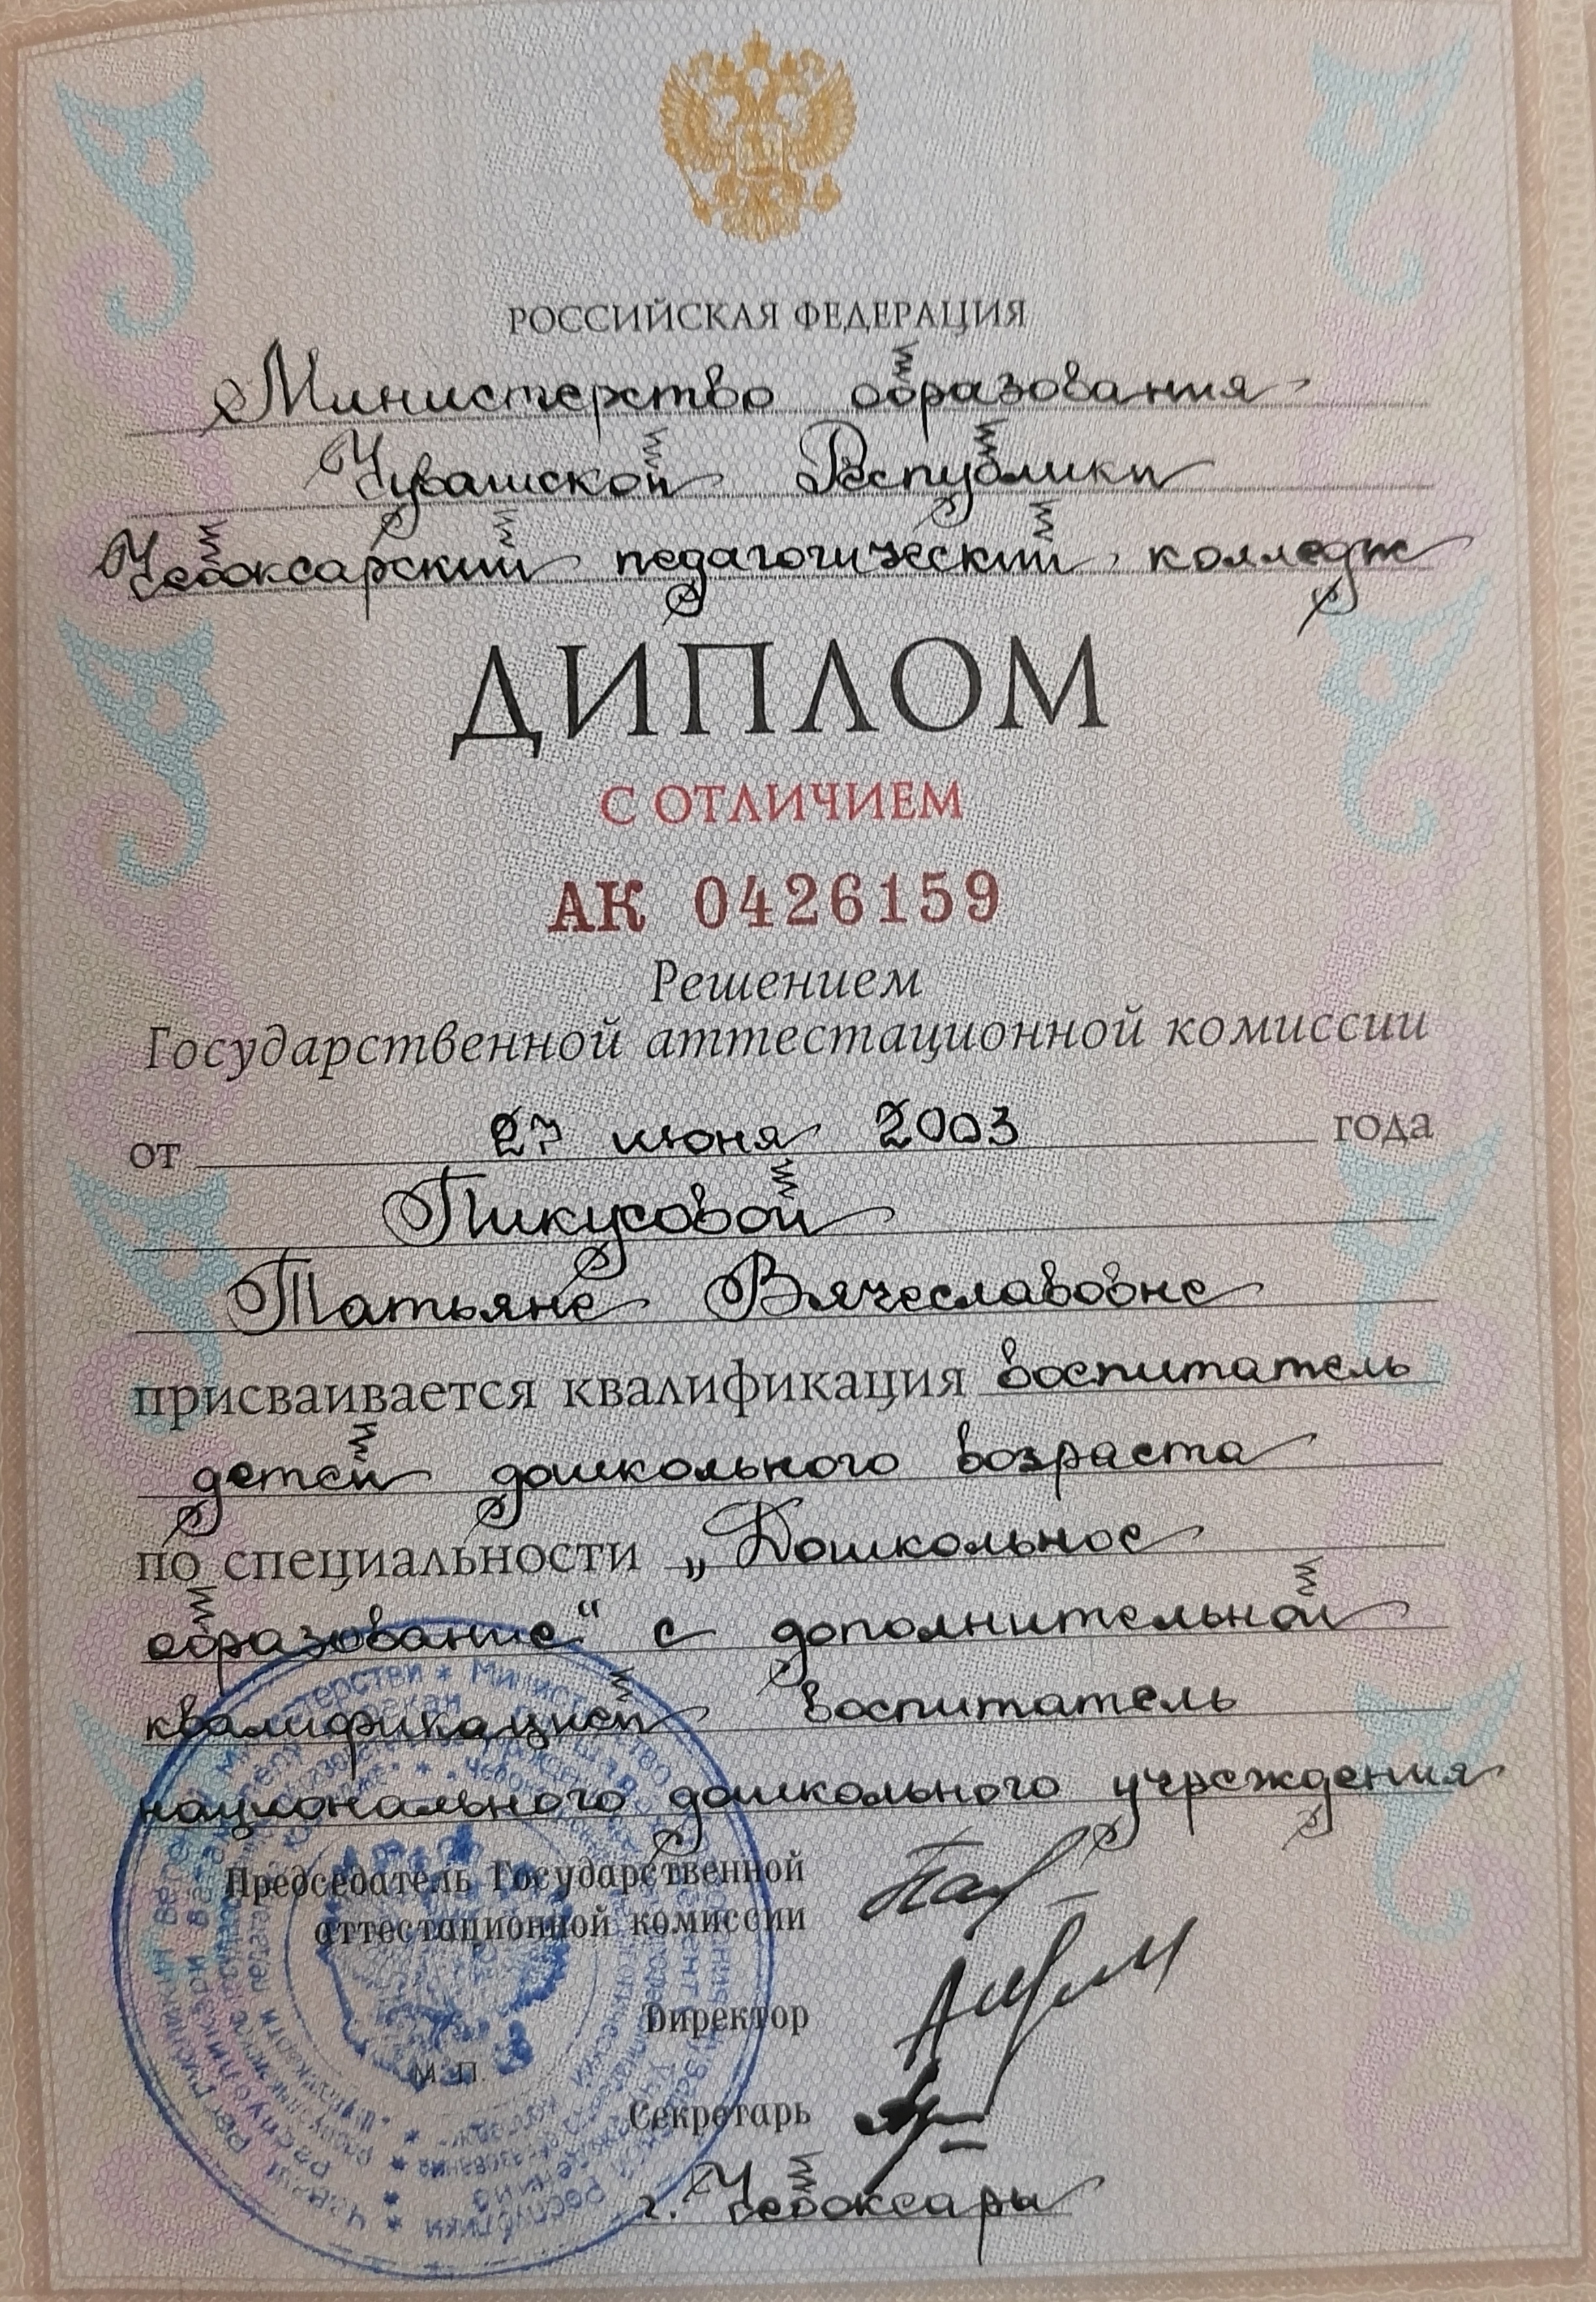 РОССИЙСКАЯ ФЕДЕРАЦИЯ
Министерство образования
Чувашской Республики
Чебоксарский педагогический колледж
ДИПЛОМ
С ОТЛИЧИЕМ
АК 0426159
Решением
Государственной аттестационной комиссии
от 27 июня 2003 года
Пикусовой
Татьяне Вячеславовне
присваивается квалификация воспитатель
детей дошкольного возраста
по специальности „Дошкольное
образование“ с дополнительной
квалификацией воспитатель
национального дошкольного учреждения
Председатель Государственной
аттестационной комиссии
Директор
М.П.
Секретарь
г. Чебоксары